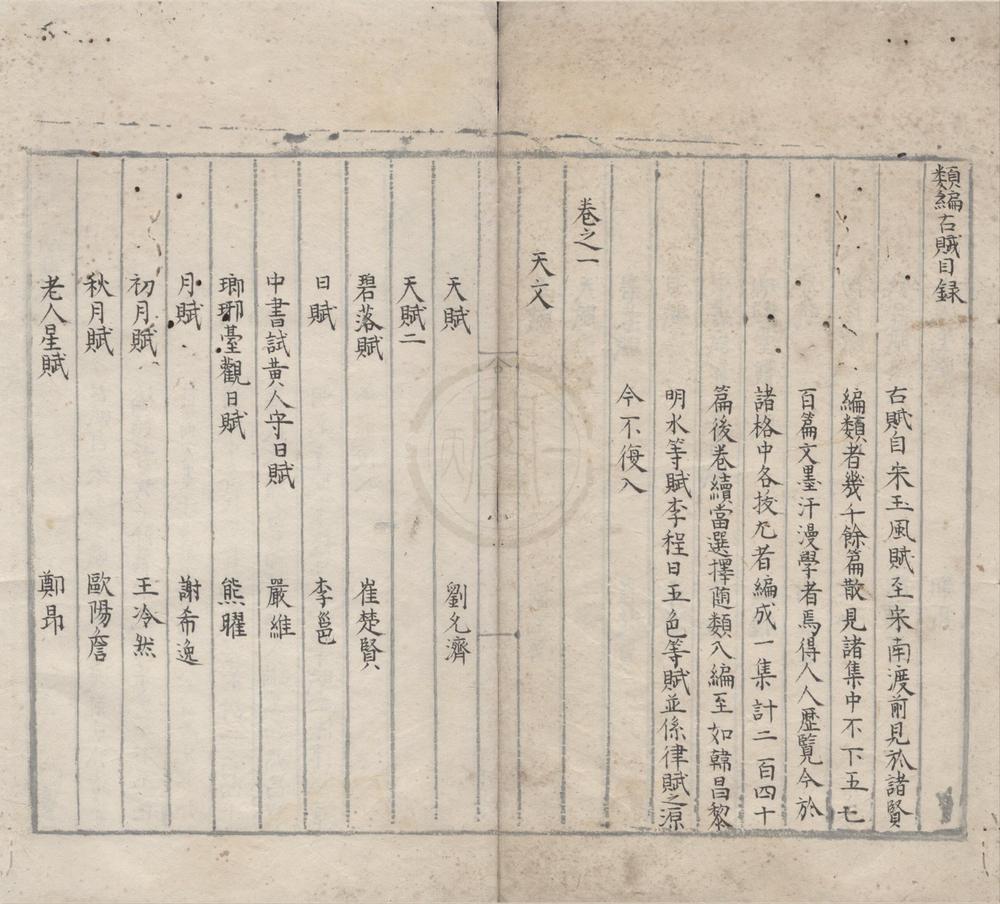 類編古賦目録
古賦自宋玉風賦至宋南渡前見於諸賢
編類者幾千餘篇散見諸集中不下五七
百篇文墨汗漫學者焉得人人歷覽今於
諸格中各掞尤者編成一集計二百四十
篇後卷續當選擇隨類入編至如韓昌黎
明水等賦李程日五色等賦並係律賦之源
今不復入
卷之一
天文
天賦 劉允濟
天賦二
碧落賦 崔楚賢
日賦 李邕
中書試黃人守日賦 嚴維
瑯琊臺觀日賦 熊曜
月賦 謝希逸
初月賦 王冷然
秋月賦 歐陽詹
老人星賦 鄭昻